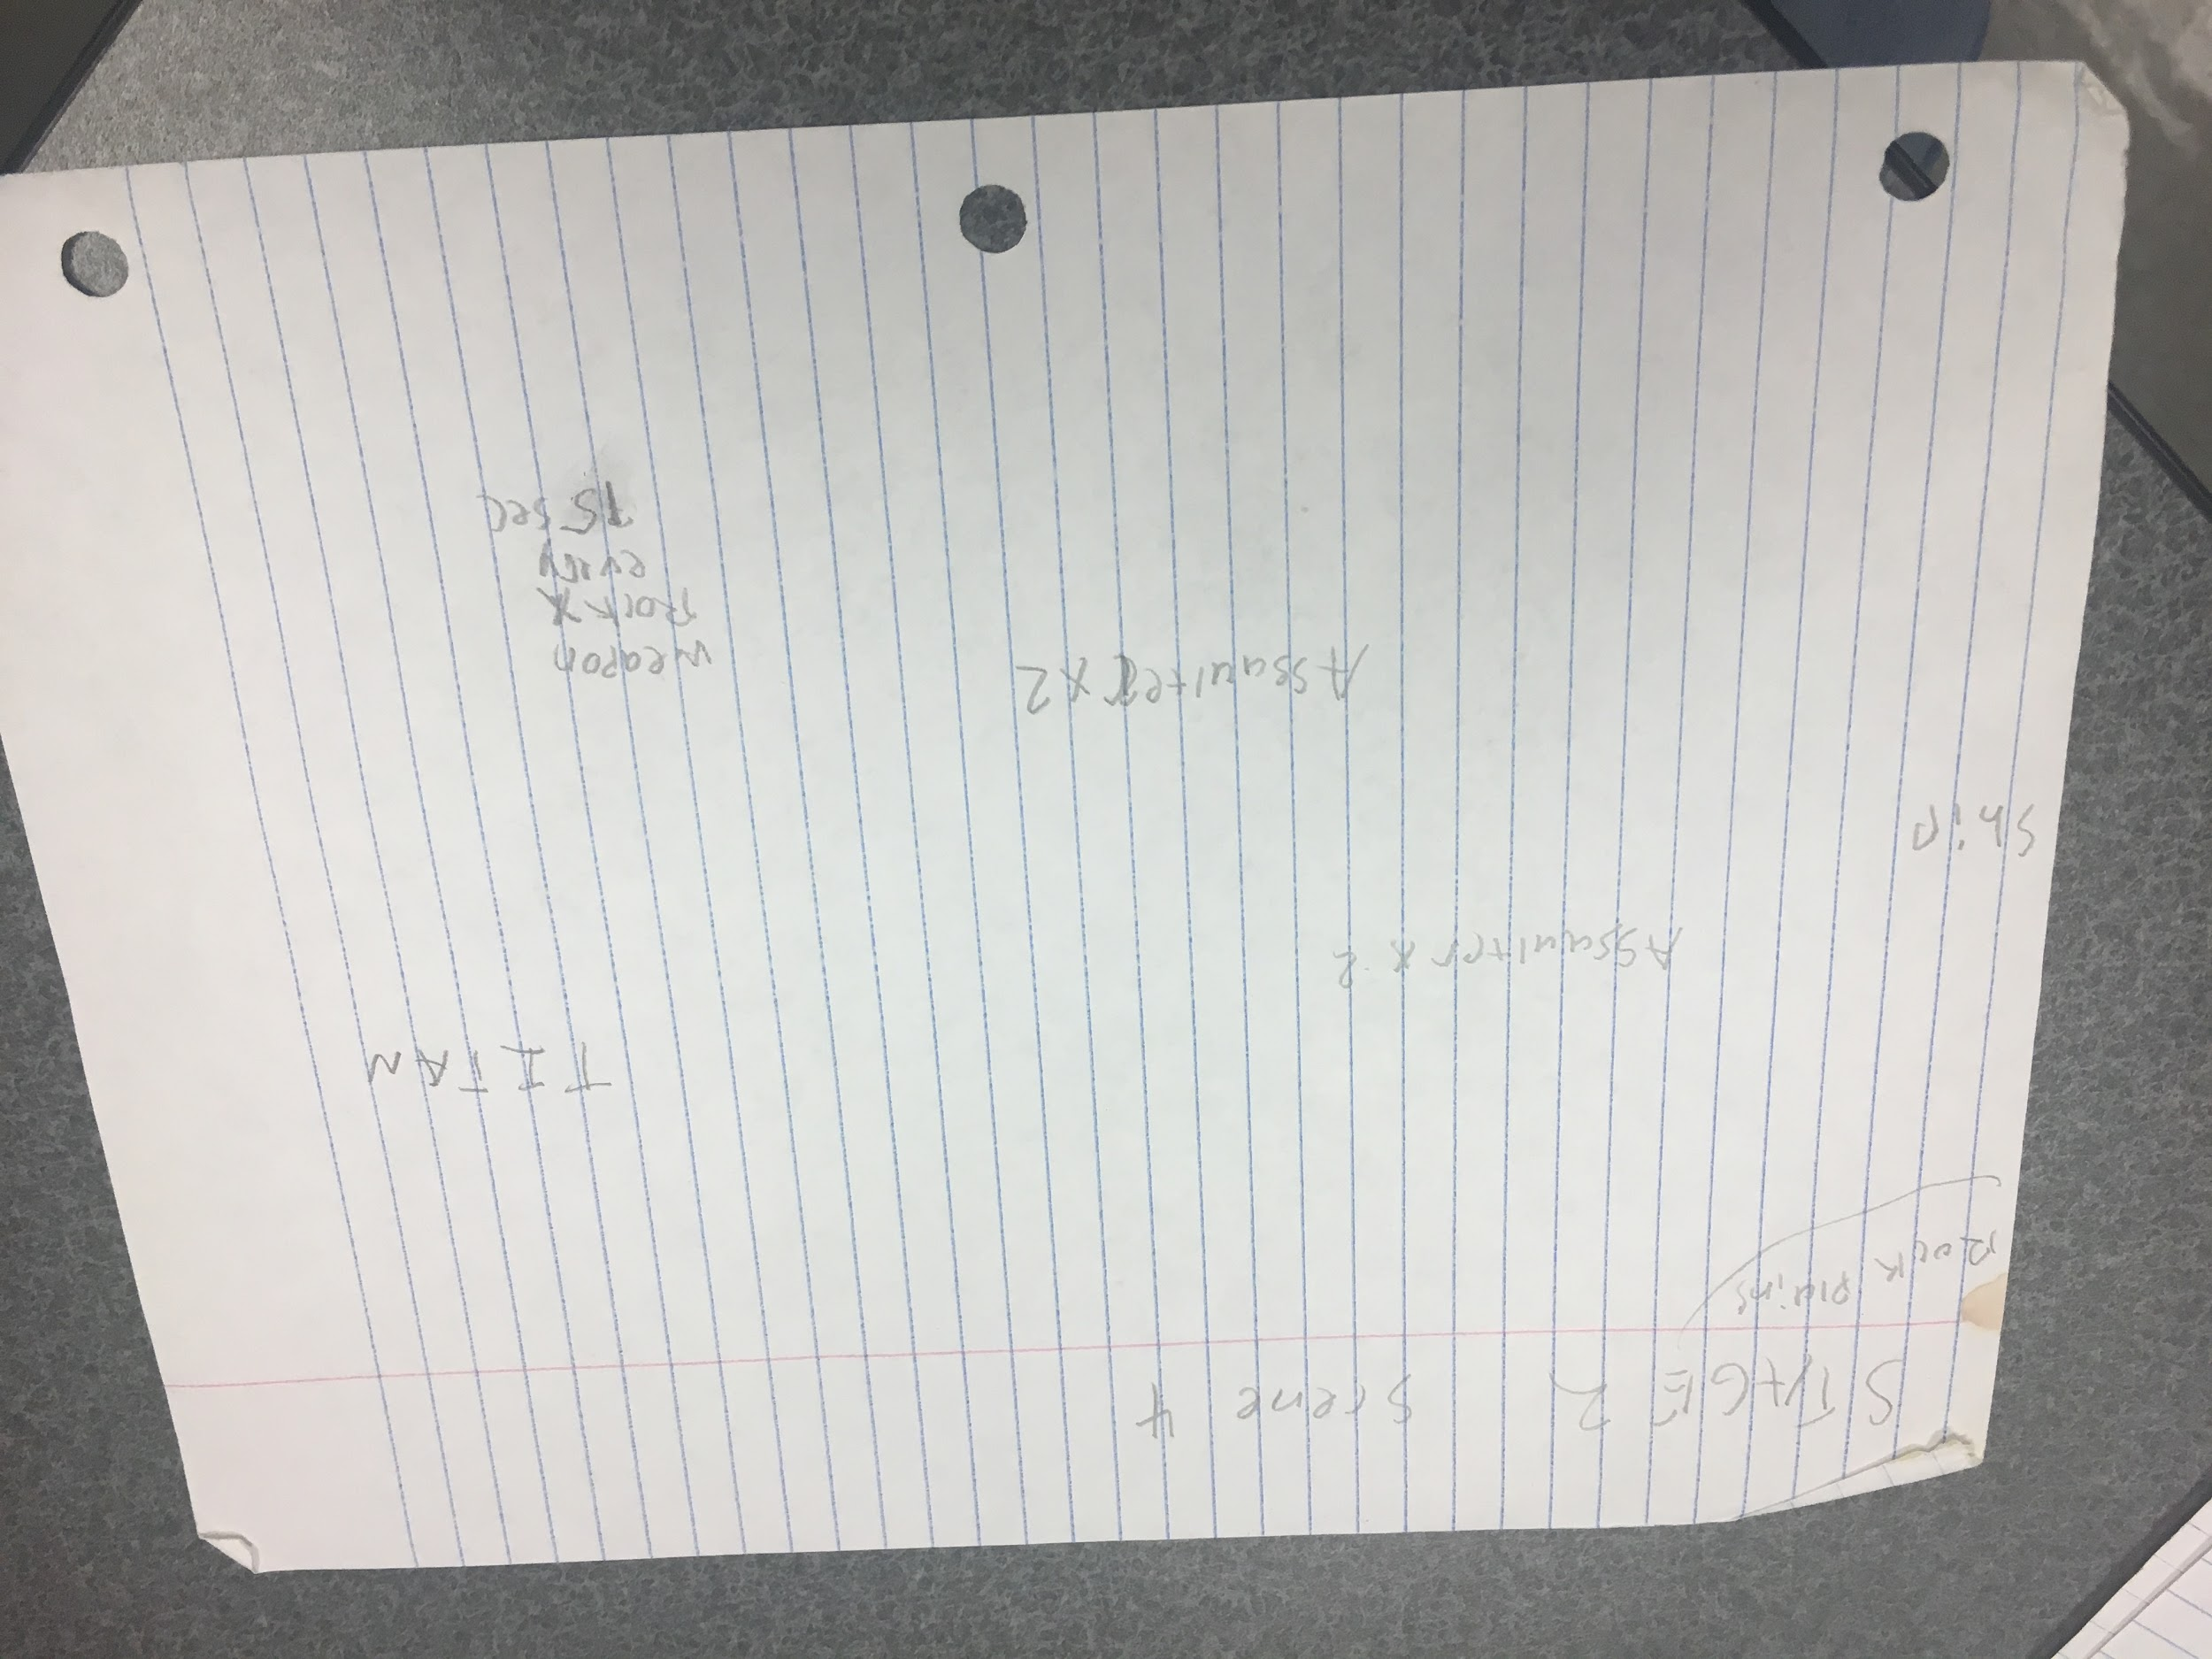 STAGE 2 Scene 4
Rock plains
TITAN
Assaulter x 2
Ship
Assaulter x 2
weapon
every
15 sec